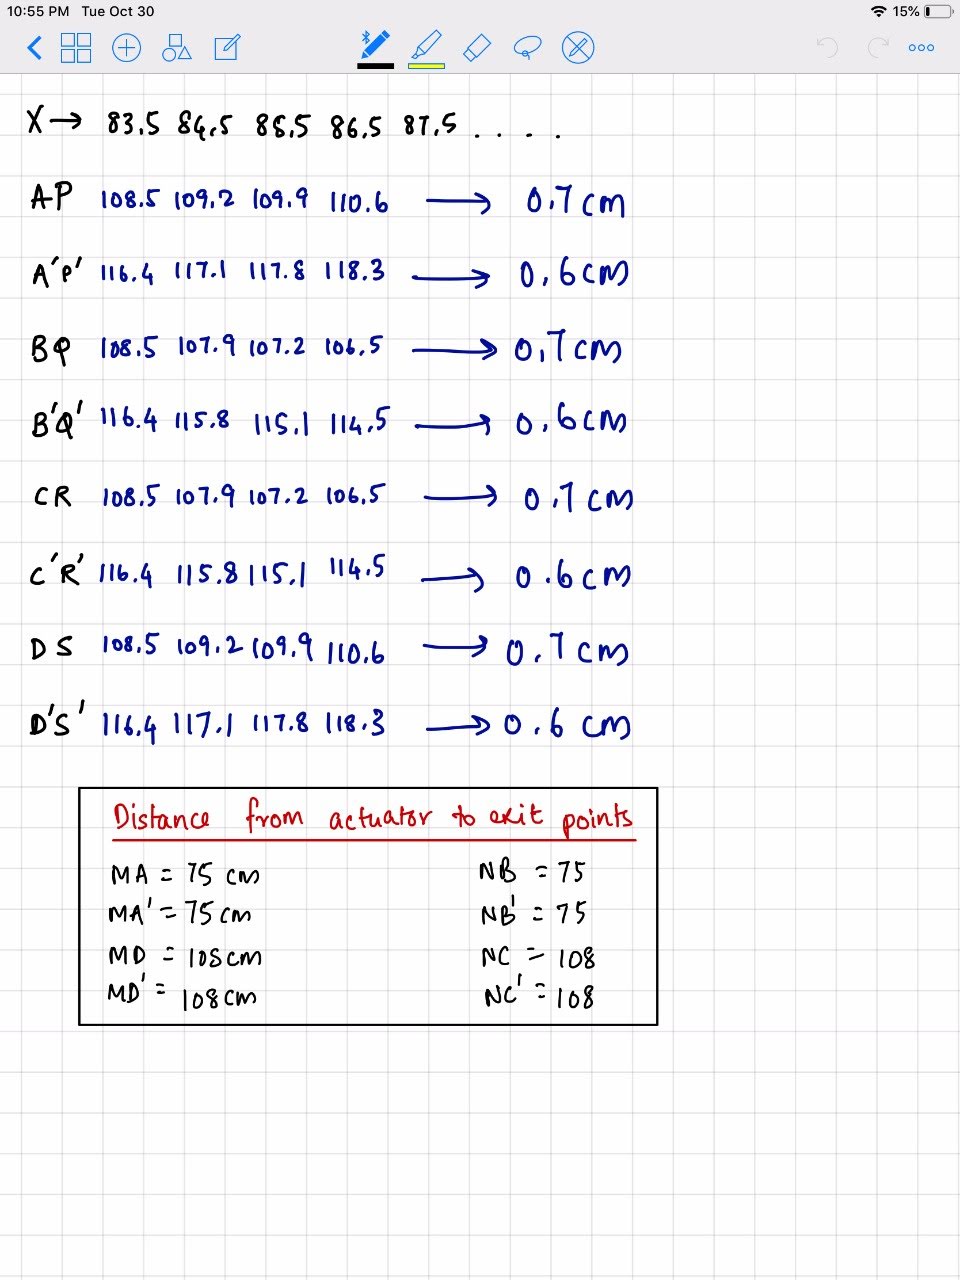 10:55 PM Tue Oct 30 15%
X → 83.5 84.5 85.5 86.5 87.5 . . . .
AP 108.5 109.2 109.9 110.6 → 0.7 cm
A'P' 116.4 117.1 117.8 118.3 → 0.6 cm
BQ 108.5 107.9 107.2 106.5 → 0.7 cm
B'Q' 116.4 115.8 115.1 114.5 → 0.6 cm
CR 108.5 107.9 107.2 106.5 → 0.7 cm
C'R' 116.4 115.8 115.1 114.5 → 0.6 cm
DS 108.5 109.2 109.9 110.6 → 0.7 cm
D'S' 116.4 117.1 117.8 118.3 → 0.6 cm
Distance from actuator to exit points
MA = 75 cm NB = 75
MA' = 75 cm NB' = 75
MD = 108 cm NC = 108
MD' = 108 cm NC' = 108